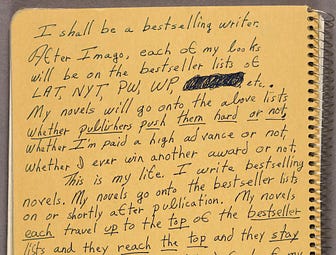 I shall be a bestselling writer.
After Imago, each of my books
will be on the bestseller lists of
LAT, NYT, PW, WP, etc.
My novels will go onto the above lists
whether publishers push them hard or not,
whether I'm paid a high advance or not,
whether I ever win another award or not.
This is my life. I write bestselling
novels. My novels go onto the bestseller lists
on or shortly after publication. My novels
each travel up to the top of the bestseller
lists and they reach the top and they stay